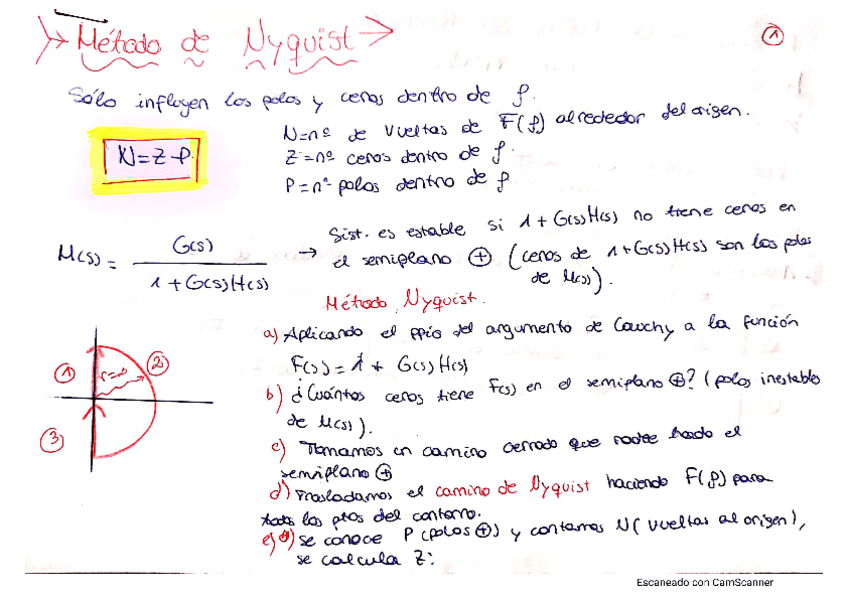 Método de Nyquist
1
Sólo influyen los polos y ceros dentro de ρ.
N=Z-P
N=nº de vueltas de F(ρ) alrededor del origen.
Z=nº ceros dentro de ρ.
P=nº polos dentro de ρ
M(s) = G(s) / 1+G(s)H(s)
→ Sist. es estable si 1+G(s)H(s) no tiene ceros en
el semiplano ⊕ (ceros de 1+G(s)H(s) son los polos
de M(s)).
Método Nyquist.
a) Aplicando el ppio del argumento de Cauchy a la función
F(s) = 1 + G(s)H(s)
b) ¿Cuántos ceros tiene F(s) en el semiplano ⊕? (polos inestables
de M(s)).
c) Tomamos un camino cerrado que rodee todo el
semiplano ⊕
d) Trasladamos el camino de Nyquist haciendo F(ρ) para
todos los ptos del contorno.
e) se conoce P (polos ⊕) y contamos N (vueltas al origen),
se calcula Z:
1
r=∞
2
3
Escaneado con CamScanner